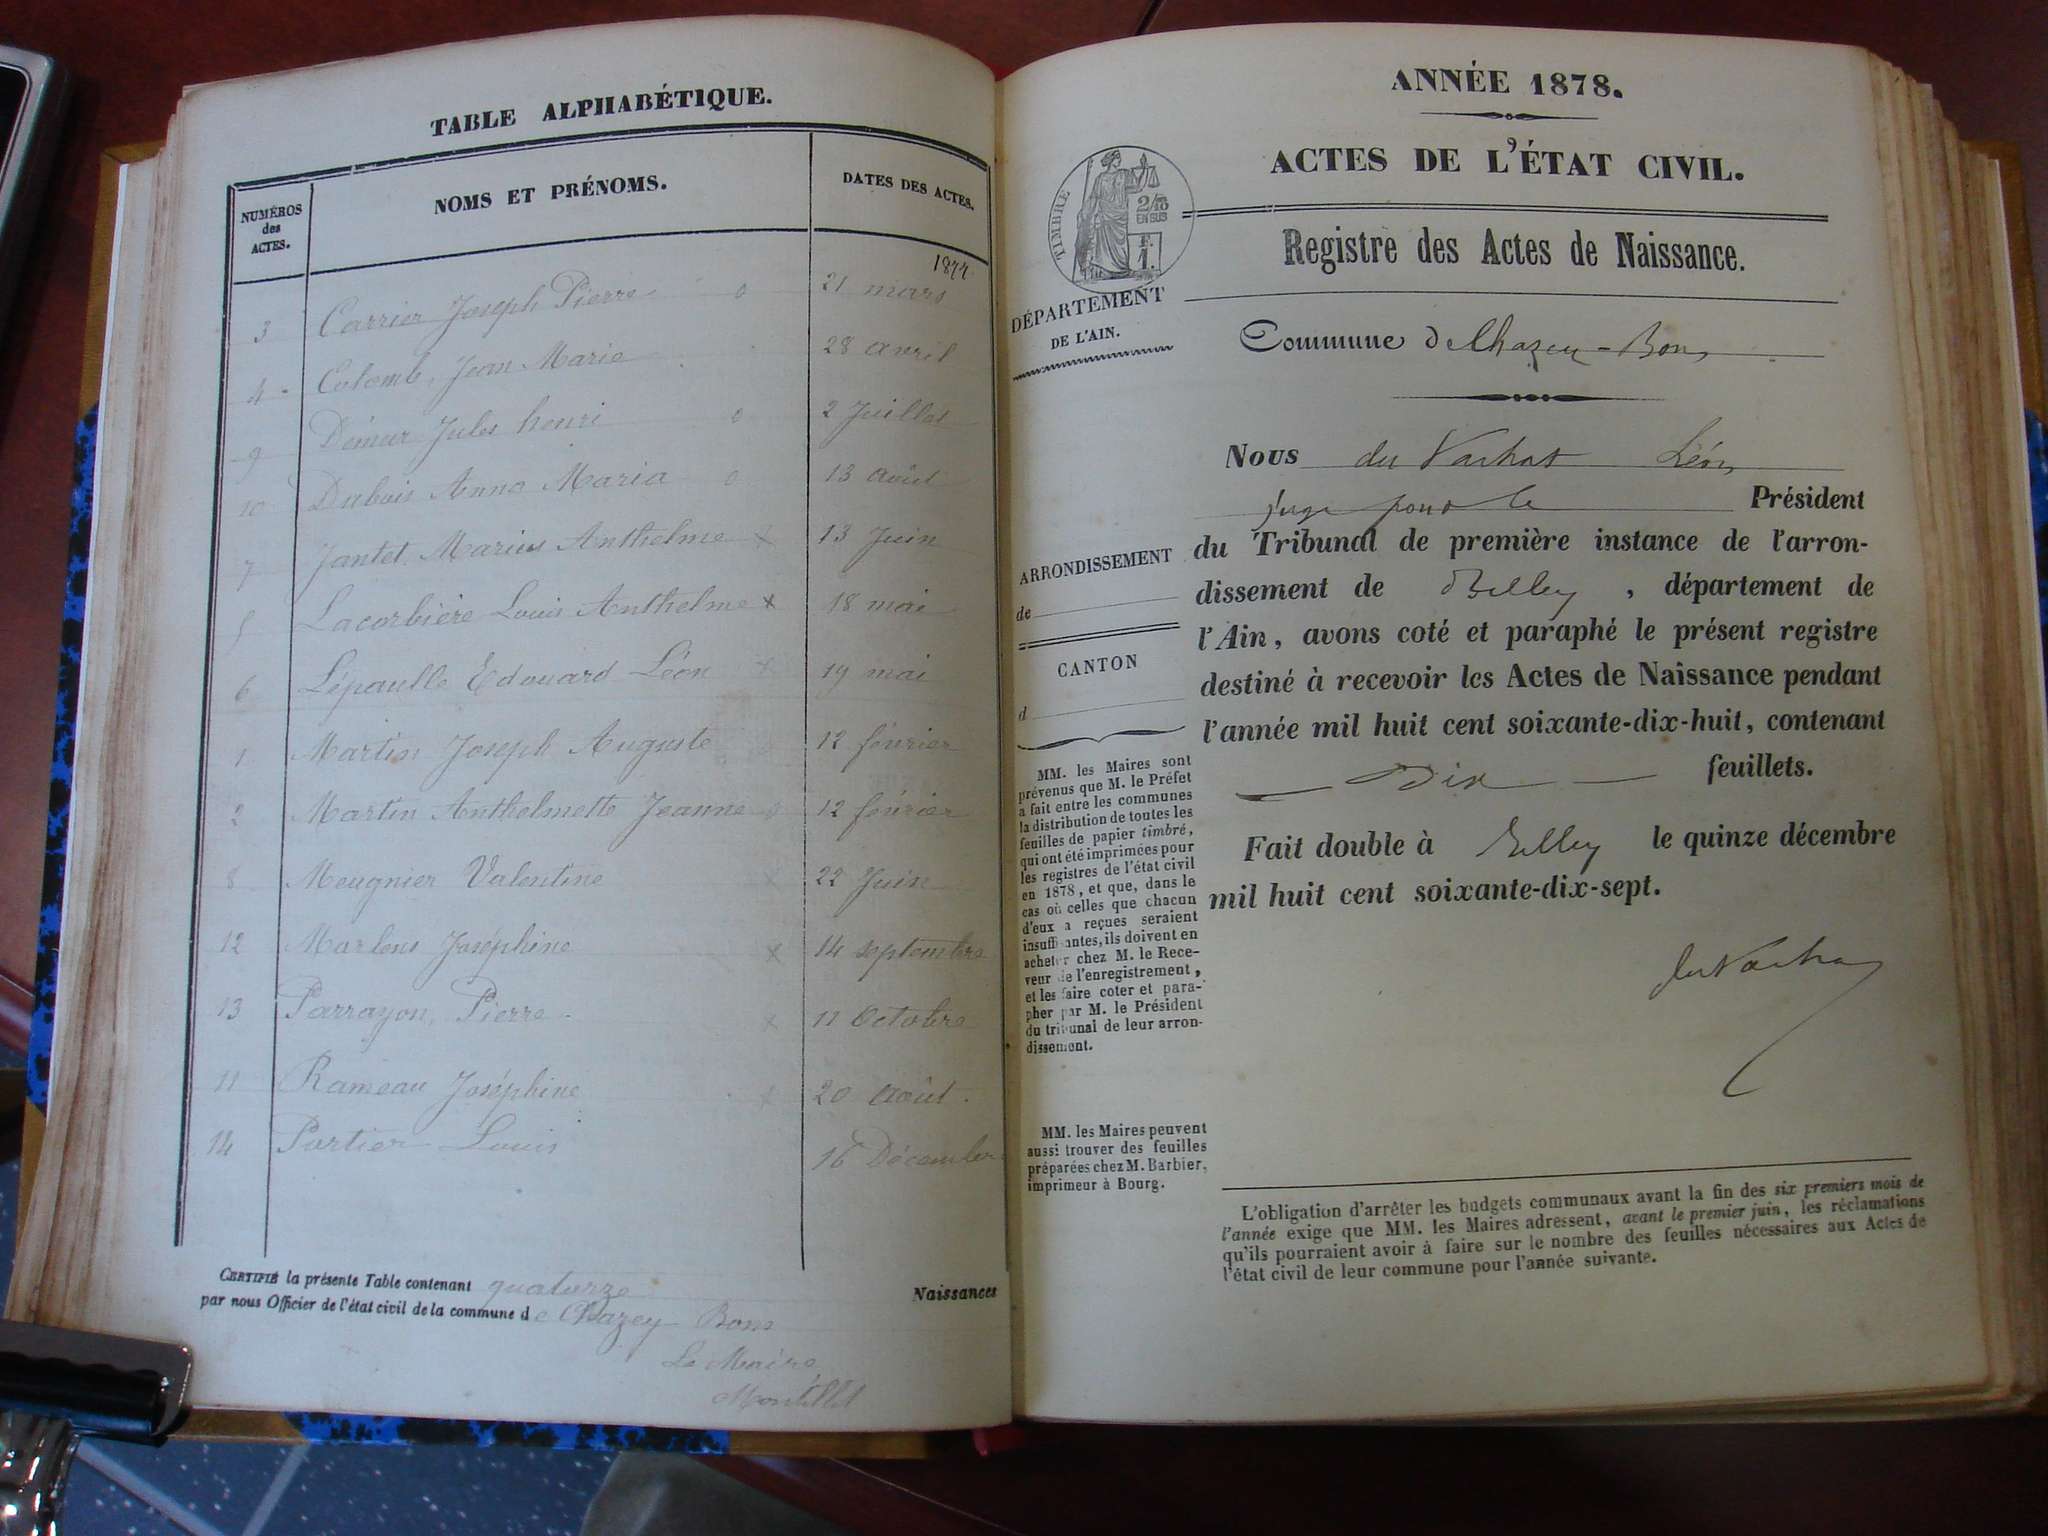 TABLE ALPHABÉTIQUE.
NUMÉROS des ACTES. NOMS ET PRÉNOMS. DATES DES ACTES.
1877
3 Carrier Joseph Pierre 21 mars
4 Colomb, Jean Marie 28 avril
9 Démar Jules henri 2 Juillet
10 Dubois Anna Maria 13 août
7 Jantet Marius Anthelme x 13 Juin
5 Lacorbière Louis Anthelme x 18 mai
6 Lépaulle Edouard Léon x 19 mai
1 Martin Joseph Auguste 12 février
2 Martin Anthelmette Jeanne 12 février
8 Meugnier Valentine x 22 Juin
12 Marlens Joséphine x 14 septembre
13 Parrayon, Pierre x 11 Octobre
11 Rameau Joséphine x 20 août
14 Portier Louis 16 Décembre
CERTIFIÉ la présente Table contenant quatorze Naissances
par nous Officier de l'état civil de la commune de Chazey Bons
Le Maire
Montillet
ANNÉE 1878.
ACTES DE L'ÉTAT CIVIL.
TIMBRE
2/10
EN SUS
F.
1.
Registre des Actes de Naissance.
DÉPARTEMENT
DE L'AIN.
Commune de Chazey-Bons
Nous du Vachat Léon
juge pour le Président
du Tribunal de première instance de l'arron-
dissement de Belley, département de
l'Ain, avons coté et paraphé le présent registre
destiné à recevoir les Actes de Naissance pendant
l'année mil huit cent soixante-dix-huit, contenant
Dix feuillets.
Fait double à Belley le quinze décembre
mil huit cent soixante-dix-sept.
du Vachat
ARRONDISSEMENT
de
CANTON
d
MM. les Maires sont
prévenus que M. le Préfet
a fait entre les communes
la distribution de toutes les
feuilles de papier timbré,
qui ont été imprimées pour
les registres de l'état civil
en 1878, et que, dans le
cas où celles que chacun
d'eux a reçues seraient
insuffisantes, ils doivent en
acheter chez M. le Rece-
veur de l'enregistrement,
et les faire coter et para-
pher par M. le Président
du tribunal de leur arron-
dissement.
MM. les Maires peuvent
aussi trouver des feuilles
préparées chez M. Barbier,
imprimeur à Bourg.
L'obligation d'arrêter les budgets communaux avant la fin des six premiers mois de
l'année exige que MM. les Maires adressent, avant le premier juin, les réclamations
qu'ils pourraient avoir à faire sur le nombre des feuilles nécessaires aux Actes de
l'état civil de leur commune pour l'année suivante.